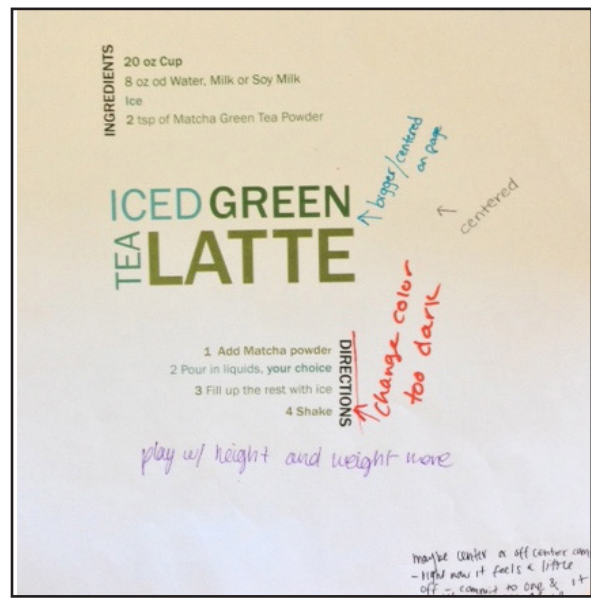 INGREDIENTS
20 oz Cup
8 oz od Water, Milk or Soy Milk
Ice
2 tsp of Matcha Green Tea Powder
ICED GREEN
TEA LATTE
bigger/centered
on page
centered
1 Add Matcha powder
2 Pour in liquids, your choice
3 Fill up the rest with ice
4 Shake
DIRECTIONS
change color
too dark
play w/ height and weight more
maybe center or off center
- right now it feels a little
off - commit to one & it